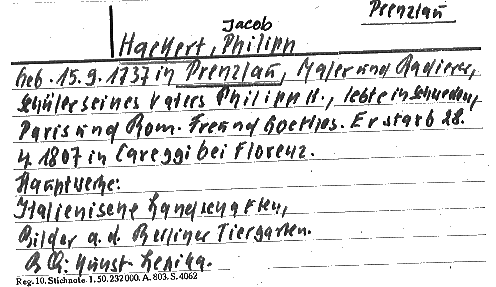 Prenzlau
Jacob
Hackert, Philipp
Geb. 15.9.1737 in Prenzlau, Maler und Radierer,
Schüler seines Vaters Philipp H., lebte in Schweden,
Paris und Rom. Freund Goethes. Er starb 28.
4. 1807 in Careggi bei Florenz.
Hauptwerke:
Italienische Landschaften,
Bilder a. d. Berliner Tiergarten.
Kunst-Lexika.
Reg. 10. Stichnote. 1. 50. 232000. A. 803. S. 4062